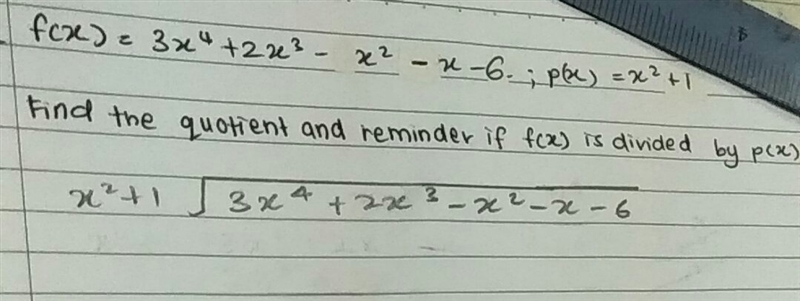 f(x) = 3x⁴ + 2x³ - x² - x - 6. ; p(x) = x² + 1
Find the quotient and reminder if f(x) is divided by p(x)
x² + 1 √3x⁴ + 2x³ - x² - x - 6